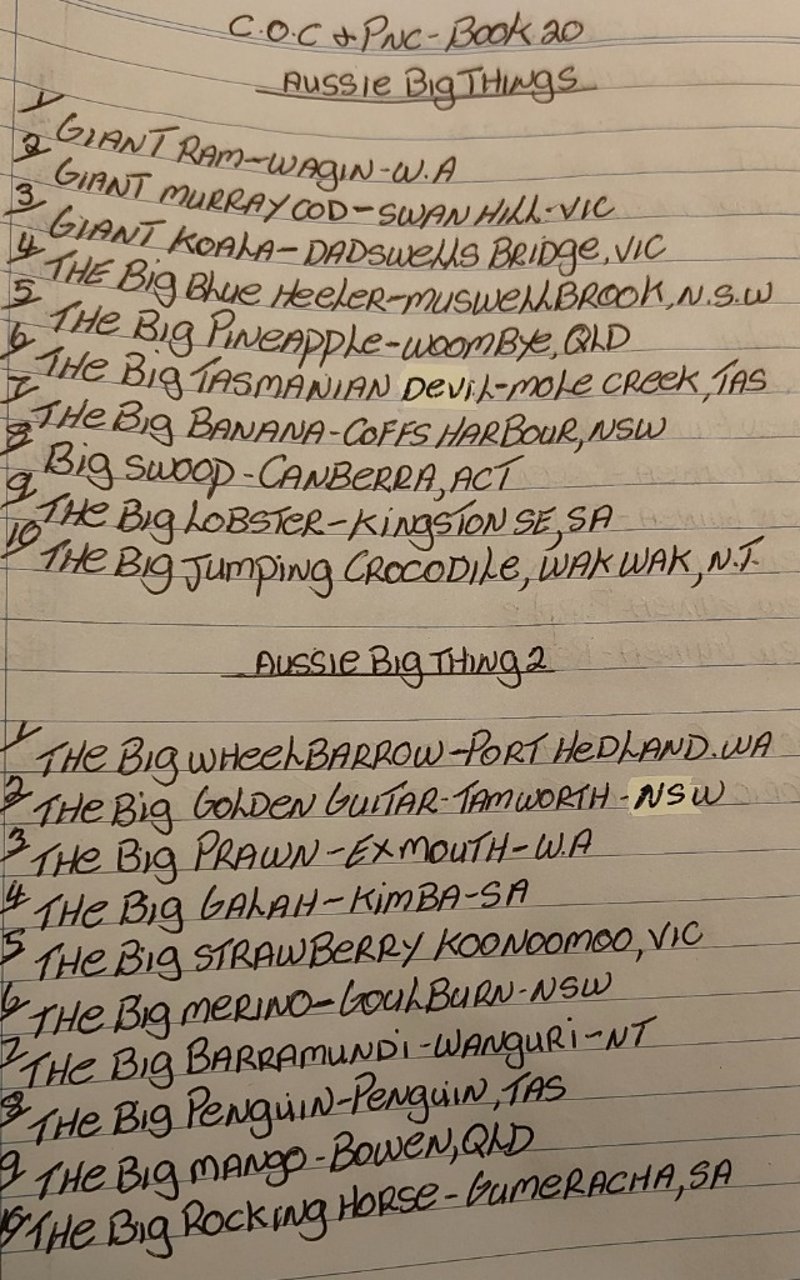 C.O.C & PNC - BOOK 20
AUSSIE BIG THINGS
1 GIANT RAM - WAGIN - W.A
2 GIANT MURRAY COD - SWAN HILL - VIC
3 GIANT KOALA - DADSWELLS BRIDGE, VIC
4 THE BIG BLUE HEELER - MUSWELLBROOK, N.S.W
5 THE BIG PINEAPPLE - WOOMBYE, QLD
6 THE BIG TASMANIAN DEVIL - MOLE CREEK, TAS
7 THE BIG BANANA - COFFS HARBOUR, NSW
8 BIG SWOOP - CANBERRA, ACT
9 THE BIG LOBSTER - KINGSTON SE, SA
10 THE BIG JUMPING CROCODILE, WAK WAK, N.T.
AUSSIE BIG THING 2
1 THE BIG WHEELBARROW - PORT HEDLAND. WA
2 THE BIG GOLDEN GUITAR - TAMWORTH - NSW
3 THE BIG PRAWN - EXMOUTH - W.A
4 THE BIG GALAH - KIMBA - SA
5 THE BIG STRAWBERRY KOONOOMOO, VIC
6 THE BIG MERINO - GOULBURN - NSW
7 THE BIG BARRAMUNDI - WANGURI - NT
8 THE BIG PENGUIN - PENGUIN, TAS
9 THE BIG MANGO - BOWEN, QLD
10 THE BIG ROCKING HORSE - GUMERACHA, SA